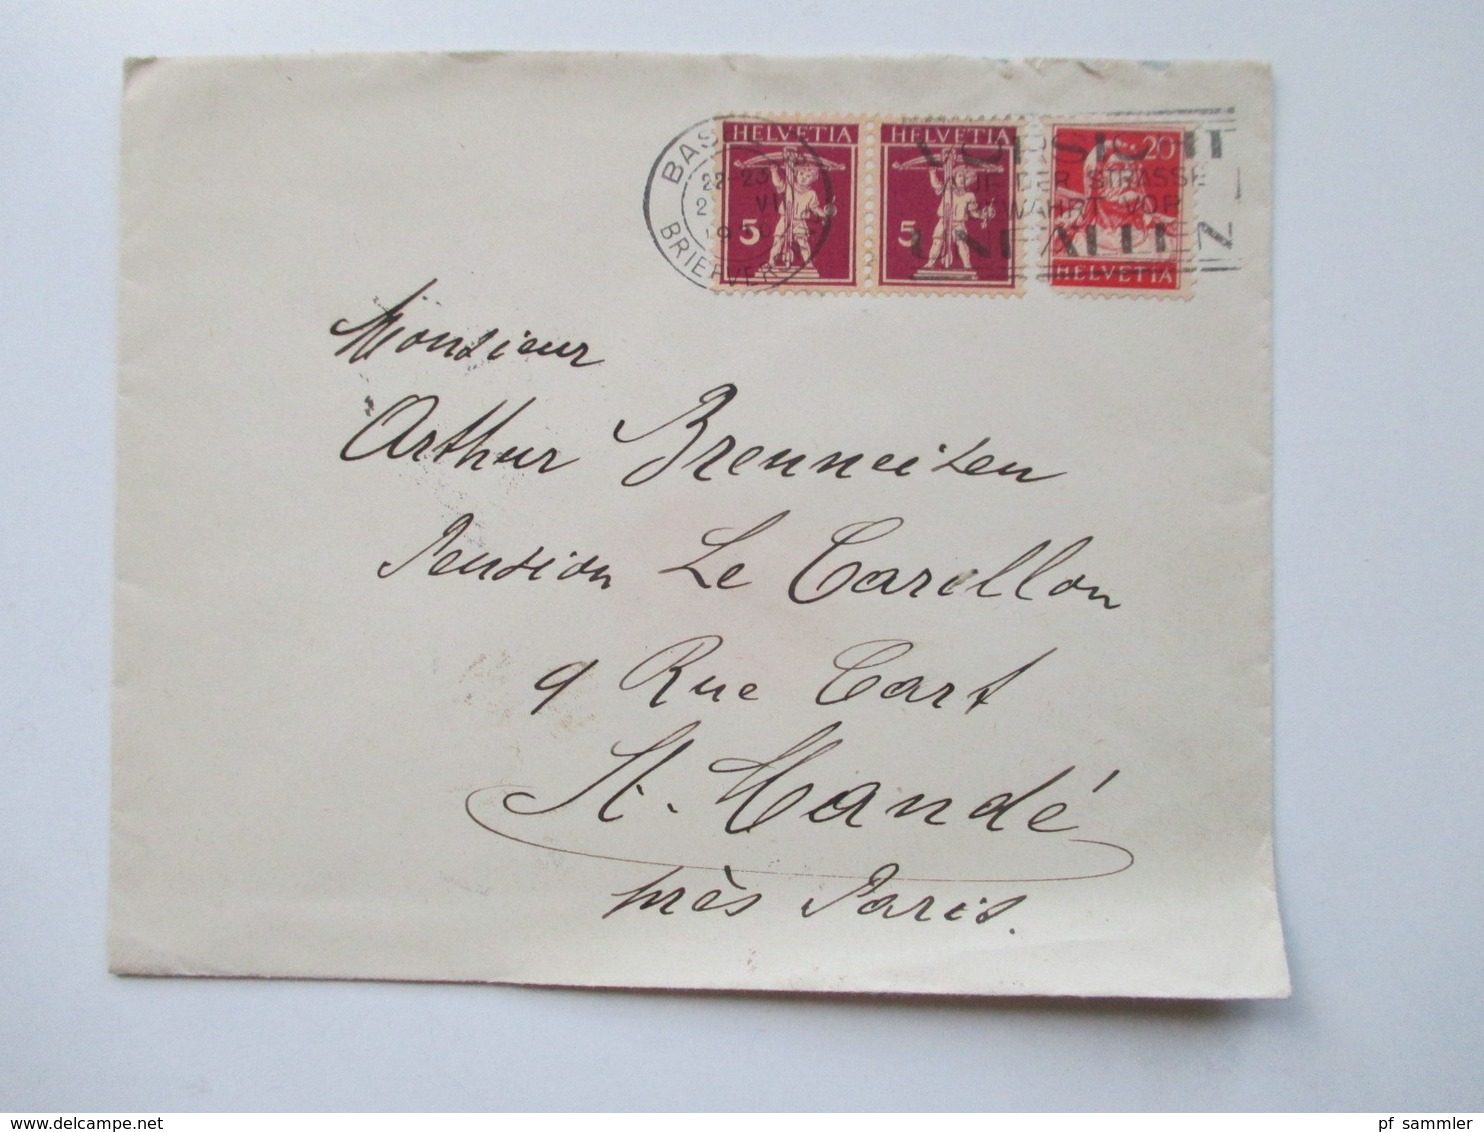 HELVETIA HELVETIA 20
5 5 HELVETIA
22-23
BRIEFVERS
VORSICHT
AUF DER STRASSE
BEWAHRT VOR
UNFÄLLEN
Monsieur
Arthur Brenneisen
Pension Le Carillon
9 Rue Cart
St. Mandé
près Paris.
pf_sammler